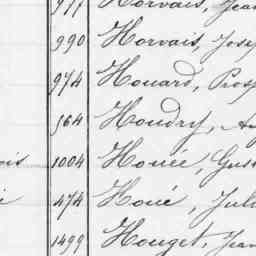 977 Horvais, Jean
990 Horvais, Josep
974 Houard, Prosp
564 Houdry, Au
1004 Houée, Gust
474 Houé, Juli
1499 Houget, Jean